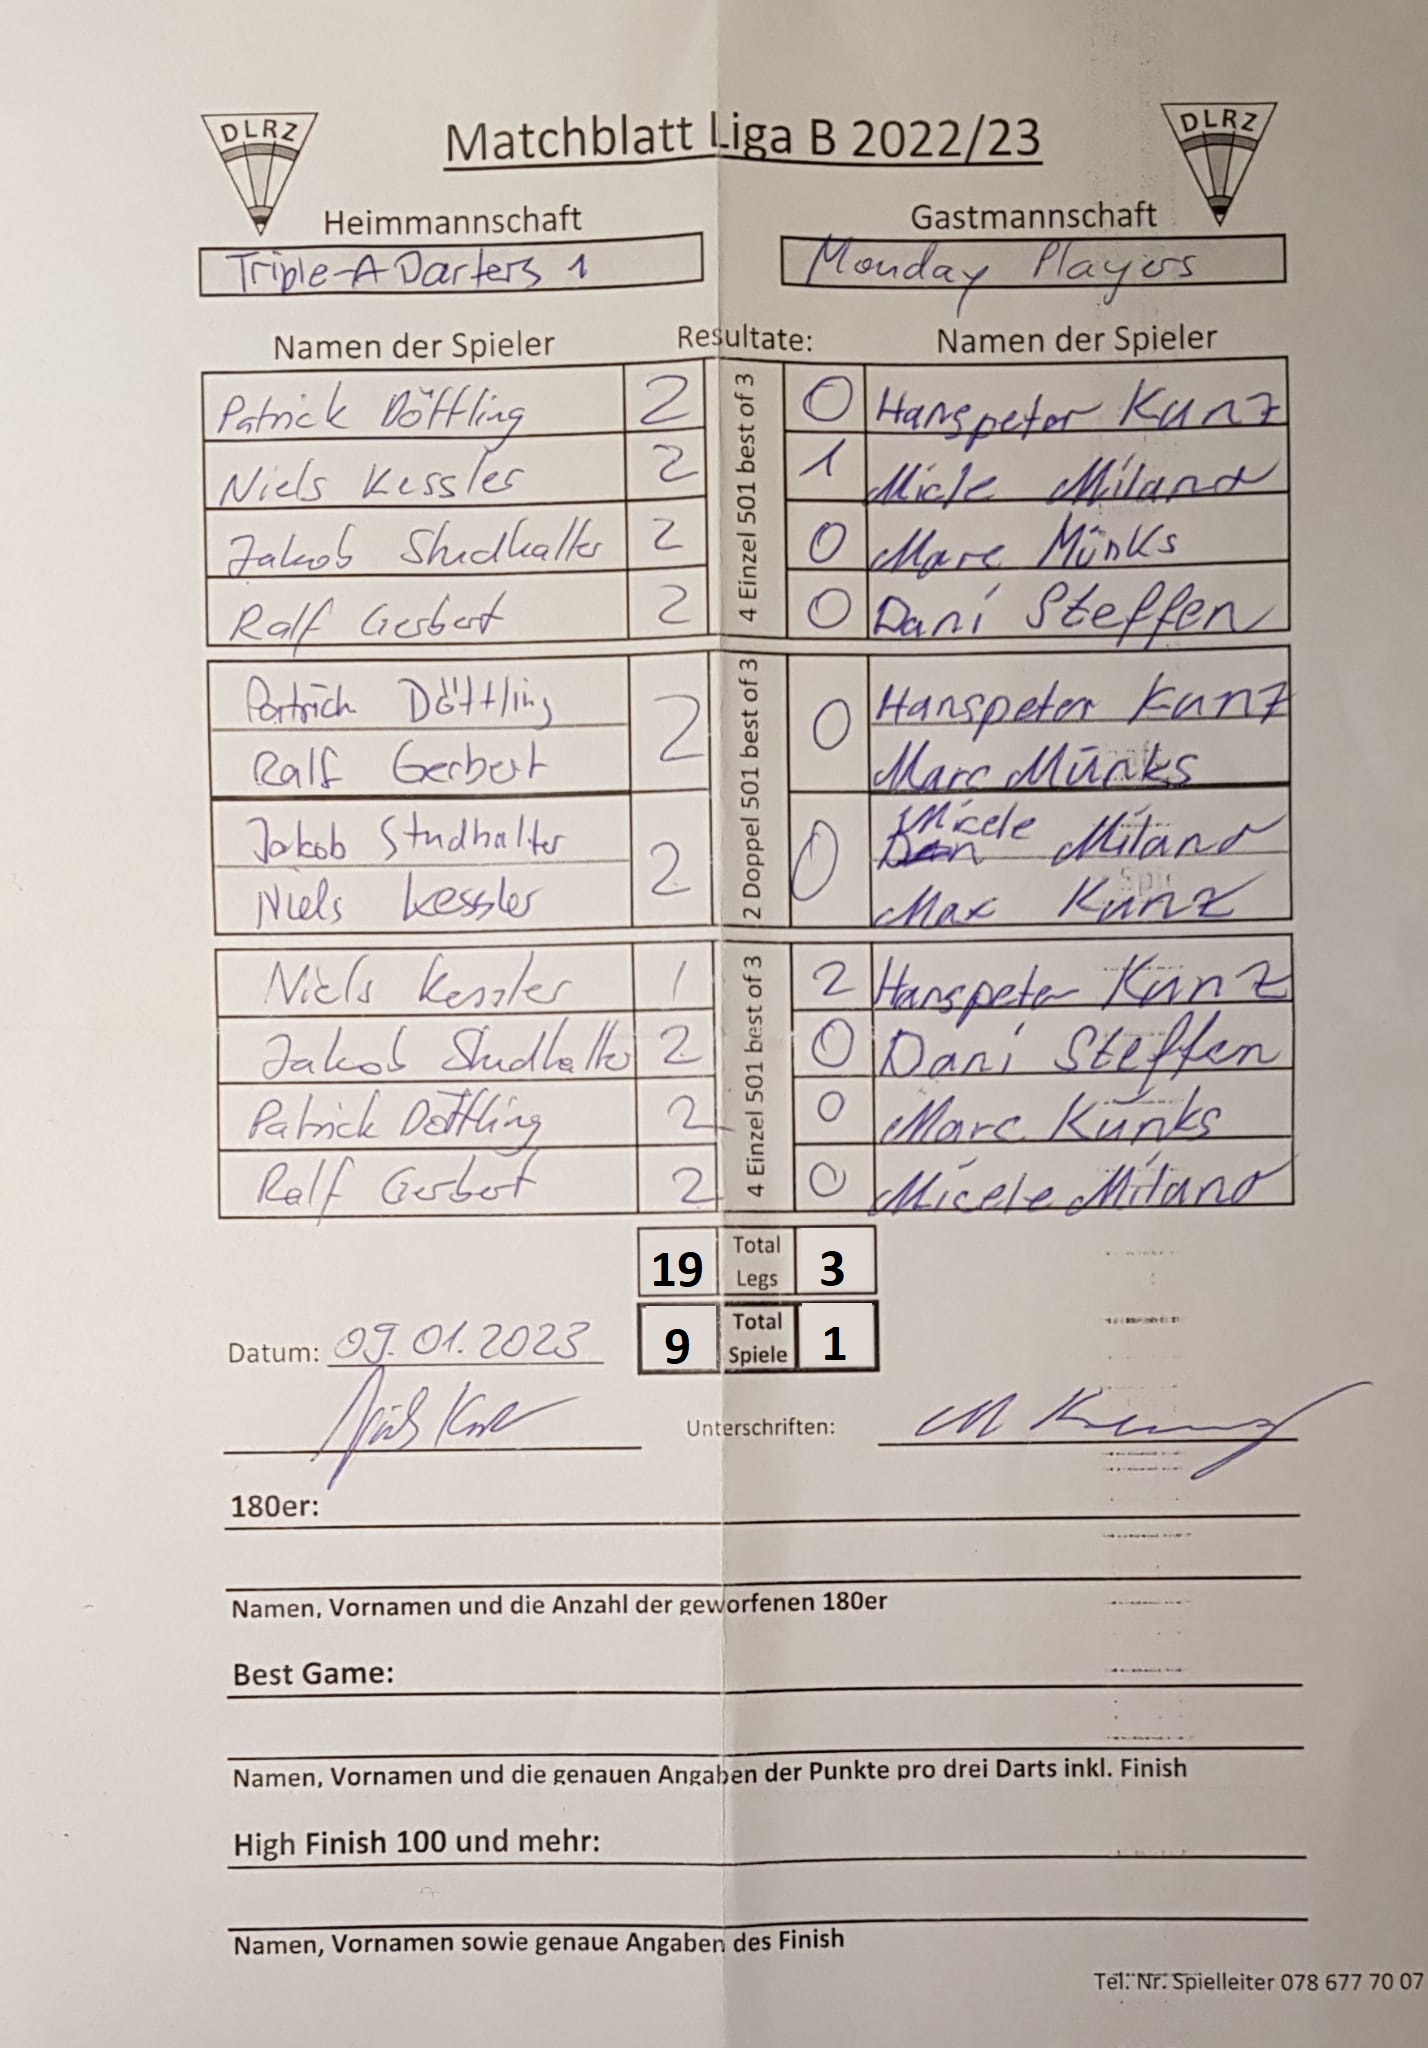 DLRZ Matchblatt Liga B 2022/23 DLRZ
Heimmannschaft Gastmannschaft
Triple-A Darters 1 Monday Players
Namen der Spieler Resultate: Namen der Spieler
4 Einzel 501 best of 3
Patrick Döttling 2 0 Hanspeter Kunz
Niels Kessler 2 1 Micle Milano
Jakob Studhalter 2 0 Marc Münks
Ralf Gerbert 2 0 Dani Steffen
2 Doppel 501 best of 3
Patrick Döttling 2 0 Hanspeter Kunz
Ralf Gerbert Marc Münks
Jakob Studhalter 2 0 Micele Milano
Niels Kessler Max Kunz
4 Einzel 501 best of 3
Niels Kessler 1 2 Hanspeter Kunz
Jakob Studhalter 2 0 Dani Steffen
Patrick Döttling 2 0 Marc Künks
Ralf Gerbert 2 0 Micele Milano
19 Total Legs 3
9 Total Spiele 1
Datum: 09.01.2023
Unterschriften: M Kunz
180er:
Namen, Vornamen und die Anzahl der geworfenen 180er
Best Game:
Namen, Vornamen und die genauen Angaben der Punkte pro drei Darts inkl. Finish
High Finish 100 und mehr:
Namen, Vornamen sowie genaue Angaben des Finish
Tel. Nr. Spielleiter 078 677 70 07